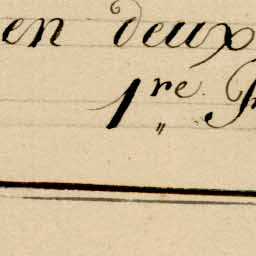 en deux
1re P